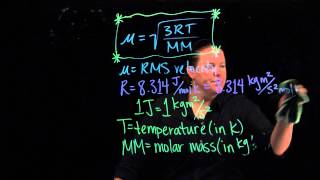 μ = √3RT/MM
μ = RMS velocity
R = 8.314 J/mol·K = 8.314 kgm²/s²mol
1J = 1 kgm²/s²
T = temperature (in K)
MM = molar mass (in kg